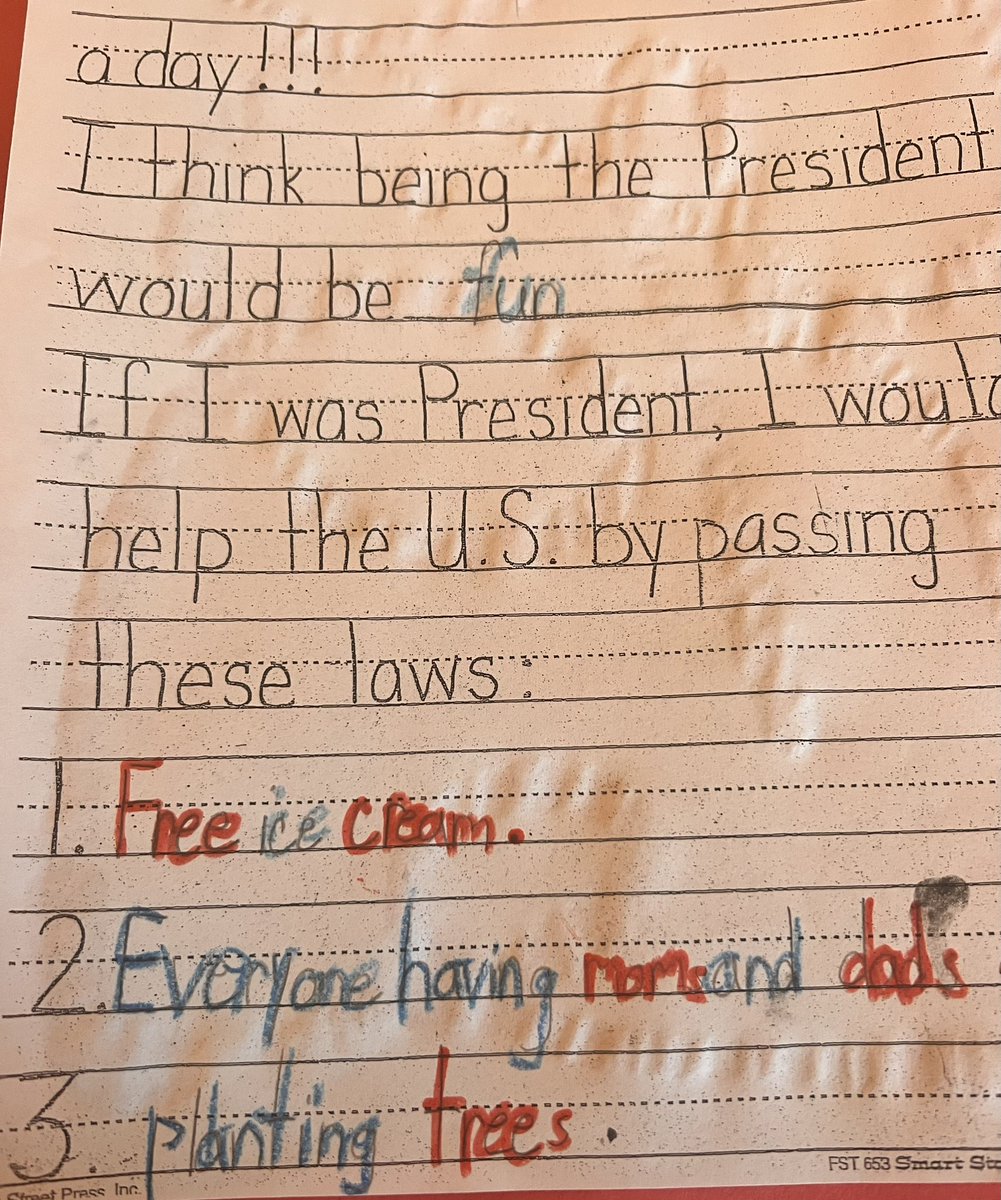 a day!!!
I think being the President
would be fun
If I was President, I would
help the U.S. by passing
these laws:
1. Free ice cream.
2. Everyone having moms and dads.
3. planting trees.
FST 653 Smart
Street Press, Inc.